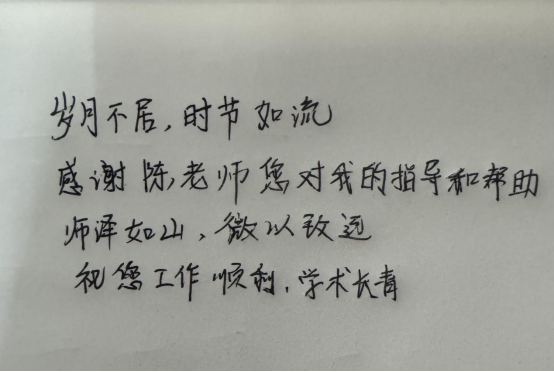 岁月不居，时节如流
感谢陈老师您对我的指导和帮助
师泽如山，微以致远
祝您工作顺利，学术长青